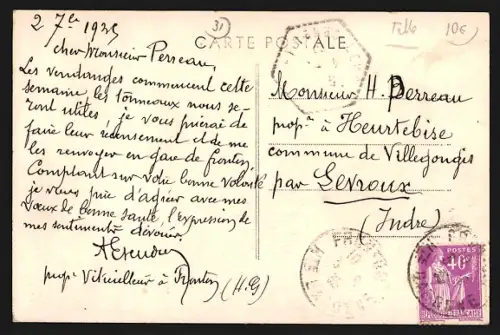 2 7bre 1935
Cher Monsieur Perreau,
Les vendanges commencent cette
semaine, les tonneaux nous se-
ront utiles, je vous prierai de
faire leur recensement et de me
les renvoyer en gare de Fronton.
Comptant sur votre bonne volonté
je vous prie d'agréer avec mes
vœux de bonne santé, l'expression de
mes sentiments dévoués.
propre Viticulteur à Fronton (H.G)
31
CARTE POSTALE
10€
Monsieur H. Perreau
propre à Heurtebise
commune de Villegongis
par Levroux
(Indre)
FRONTON
POSTES
+0F